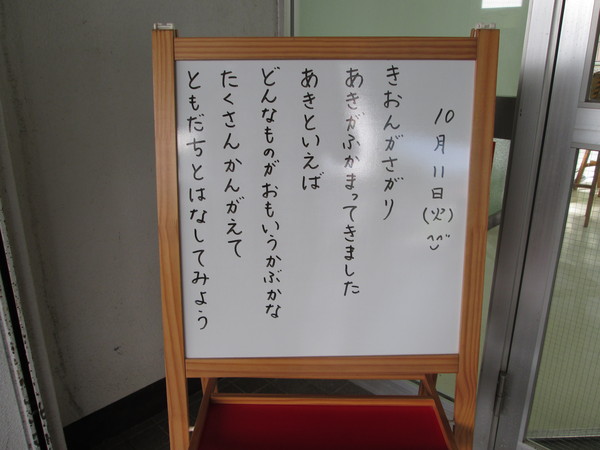 10月11日(火)
きおんがさがり
あきがふかまってきました
あきといえば
どんなものがおもいうかぶかな
たくさんかんがえて
ともだちとはなしてみよう